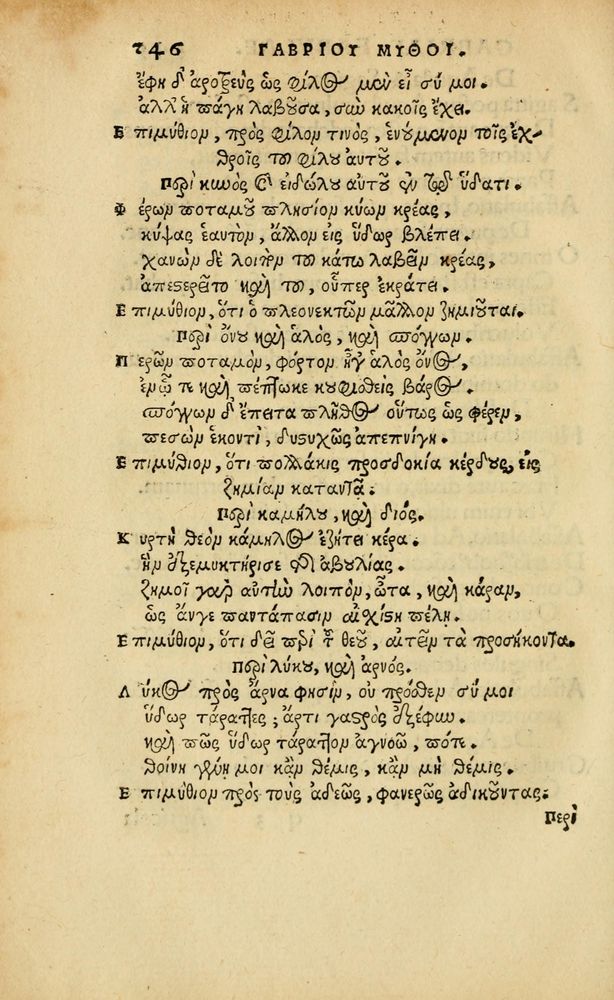 246 ΓΑΒΡΙΟΥ ΜΥΘΟΙ.
ἔφη δ' ἀροτρεὺς ὡς φίλος μὲν εἶ σύ μοι.
ἀλλ' ἡ πάγη λαβοῦσα, σὰν κακοῖς ἔχει.
Ἐπιμύθιον, πρὸς φίλον τινὸς, ἑνούμενον τοῖς ἐχ-
θροῖς τοῦ φίλου αὐτοῦ.
Περὶ κυνὸς καὶ εἰδώλου αὐτοῦ ἐν τῷ ὕδατι.
Φέρων ποταμοῦ πλησίον κύων κρέας,
κύψας ἑαυτὸν, ἄλλον εἰς ὕδωρ βλέπει.
χανὼν δὲ λοιπὸν τὸ κάτω λαβεῖν κρέας,
ἀπεστερεῖτο καὶ τοῦ, οὗπερ ἐκράτει.
Ἐπιμύθιον, ὅτι ὁ πλεονεκτῶν μᾶλλον ζημιοῦται.
Περὶ ὄνου καὶ ἁλὸς, καὶ σπόγγων.
Περῶν ποταμὸν, φόρτον ἦγ' ἁλὸς ὄνος,
ἐν ᾧ τε καὶ πέπτωκε κουφισθεὶς βάρος.
σπόγγων δ' ἔπειτα πλῆθος οὕτως ὡς φέρεν,
πεσὼν ἑκοντὶ, δυστυχῶς ἀπεπνίγη.
Ἐπιμύθιον, ὅτι πολλάκις προσδοκία κέρδους, εἰς
ζημίαν καταντᾷ.
Περὶ καμήλου, καὶ διός.
Κυρτὴ θεὸν κάμηλος ἐζήτει κέρα.
ἣν ἐξεμυκτήρισε τῆς ἀβουλίας.
ζημοῖ γὰρ αὐτὴν λοιπὸν, ὦτα, καὶ κάραν,
ὡς ἄνγε παντάπασιν αἰχίστη πέλῃ.
Ἐπιμύθιον, ὅτι δεῖ παρὶ τοῦ θεοῦ, αἰτεῖν τὰ προσήκοντα.
Περὶ λύκου, καὶ ἀρνός.
Λύκος πρὸς ἄρνα φησὶν, οὐ πρόσθεν σύ μοι
ὕδωρ τάραττες; ἄρτι γαστρὸς ἐξέφυν.
καὶ πῶς ὕδωρ τάραττον ἀγνοῶ, πότε.
θοίνη γενῇ μοι κἂν θέμις, κἂν μὴ θέμις.
Ἐπιμύθιον πρὸς τοὺς ἀδεῶς, φανερῶς ἀδικοῦντας.
Περὶ